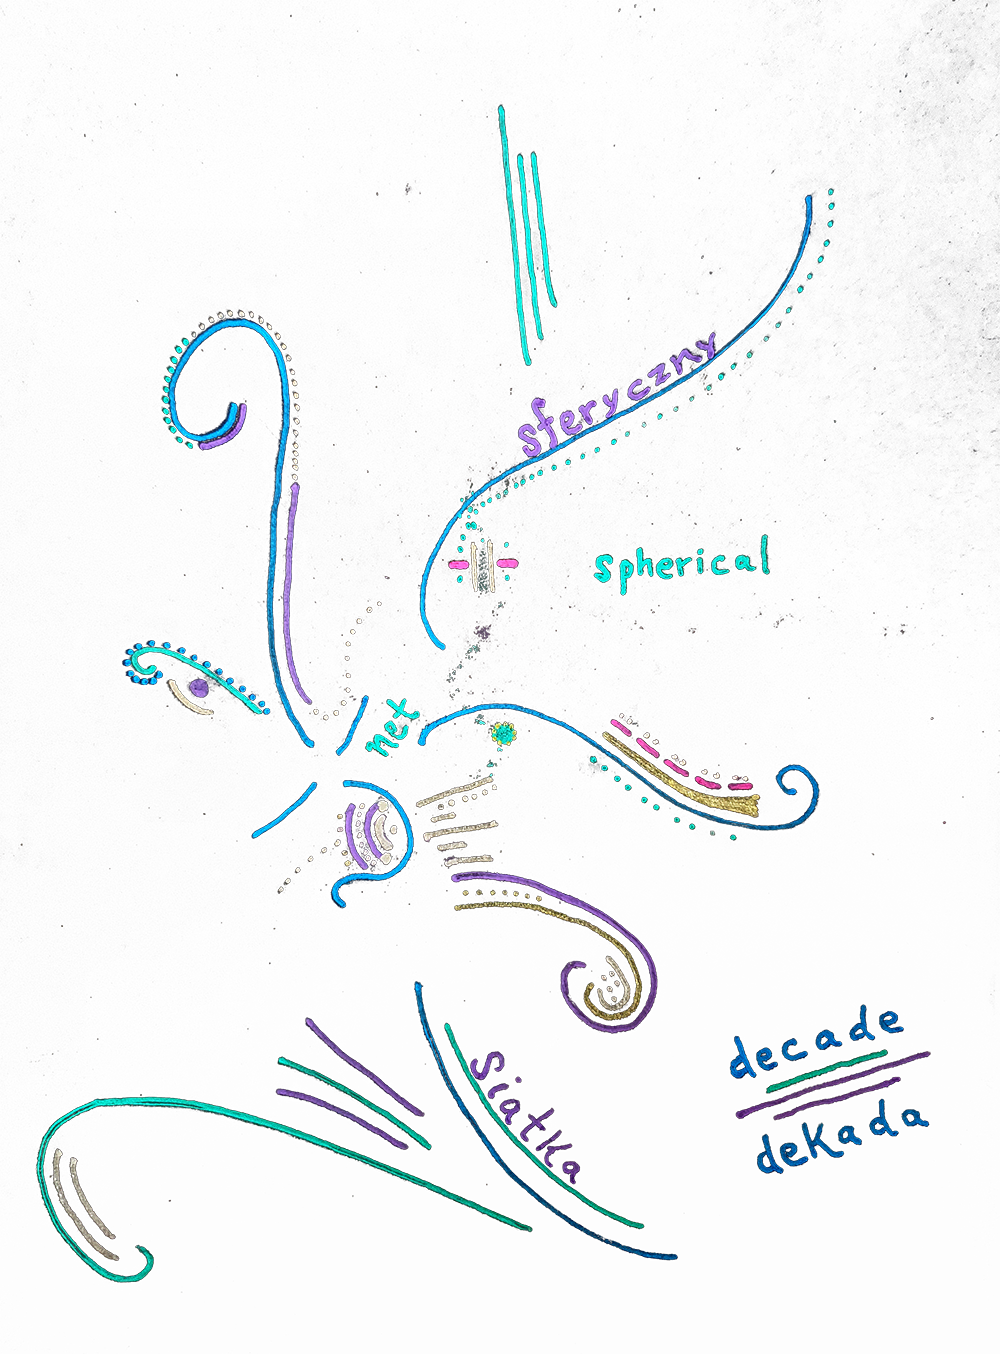 sferyczny
spherical
net
siatka
decade
dekada